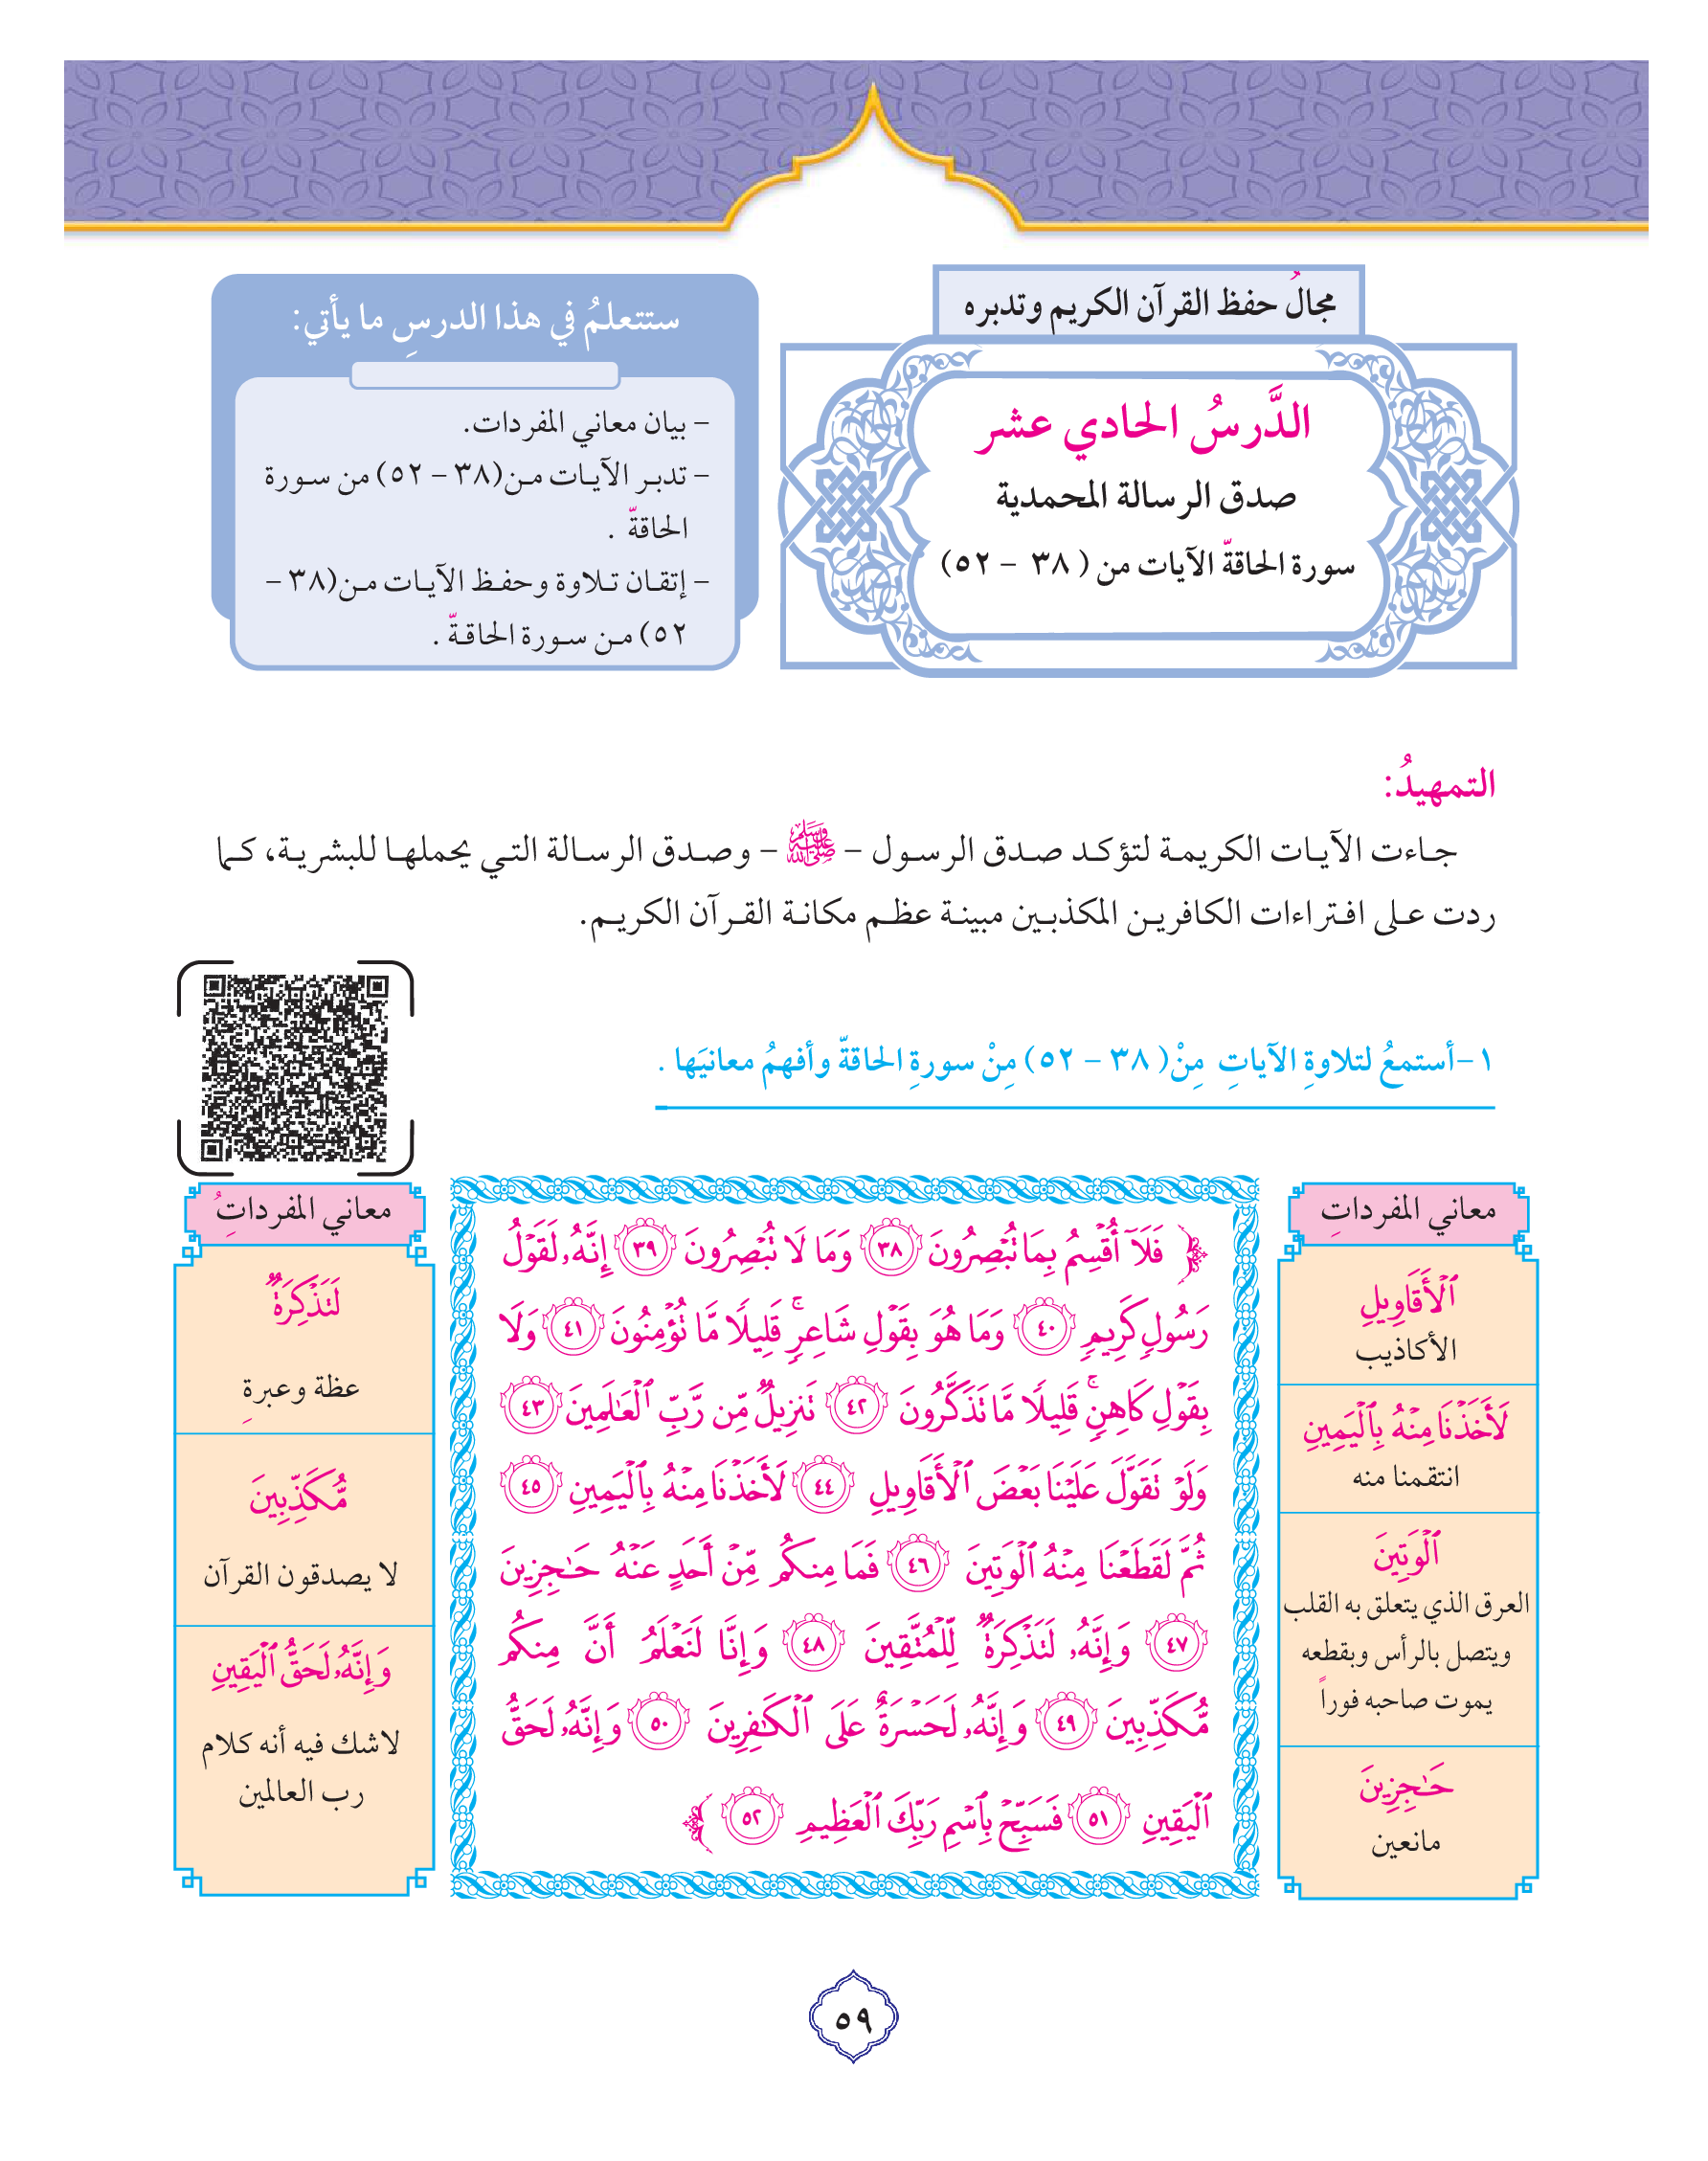 مجالُ حفظ القرآن الكريم وتدبره
الدَّرسُ الحادي عشر
صدق الرسالة المحمدية
سورة الحاقةّ الآيات من ( ٣٨ - ٥٢)
ستتعلمُ في هذا الدرسِ ما يأتي:
- بيان معاني المفردات.
- تدبر الآيات من(٣٨ - ٥٢) من سورة
الحاقةّ .
- إتقان تلاوة وحفظ الآيات من(٣٨ -
٥٢) من سورة الحاقةّ .
التمهيدُ:
جاءت الآيات الكريمة لتؤكد صدق الرسول - ﷺ - وصدق الرسالة التي يحملها للبشرية، كما
ردت على افتراءات الكافرين المكذبين مبينة عظم مكانة القرآن الكريم.
١-أستمعُ لتلاوةِ الآياتِ مِنْ( ٣٨ - ٥٢) مِنْ سورةِ الحاقةّ وأفهمُ معانيَها .
معاني المفرداتِ
ٱلْأَقَاوِيلِ
الأكاذيب
لَأَخَذْنَا مِنْهُ بِٱلْيَمِينِ
انتقمنا منه
ٱلْوَتِينَ
العرق الذي يتعلق به القلب
ويتصل بالرأس وبقطعه
يموت صاحبه فوراً
حَٰجِزِينَ
مانعين
﴿ فَلَآ أُقْسِمُ بِمَا تُبْصِرُونَ ٣٨ وَمَا لَا تُبْصِرُونَ ٣٩ إِنَّهُۥ لَقَوْلُ
رَسُولٍ كَرِيمٍ ٤٠ وَمَا هُوَ بِقَوْلِ شَاعِرٍۚ قَلِيلًا مَّا تُؤْمِنُونَ ٤١ وَلَا
بِقَوْلِ كَاهِنٍۚ قَلِيلًا مَّا تَذَكَّرُونَ ٤٢ تَنزِيلٌ مِّن رَّبِّ ٱلْعَٰلَمِينَ ٤٣
وَلَوْ تَقَوَّلَ عَلَيْنَا بَعْضَ ٱلْأَقَاوِيلِ ٤٤ لَأَخَذْنَا مِنْهُ بِٱلْيَمِينِ ٤٥
ثُمَّ لَقَطَعْنَا مِنْهُ ٱلْوَتِينَ ٤٦ فَمَا مِنكُم مِّنْ أَحَدٍ عَنْهُ حَٰجِزِينَ
٤٧ وَإِنَّهُۥ لَتَذْكِرَةٌ لِّلْمُتَّقِينَ ٤٨ وَإِنَّا لَنَعْلَمُ أَنَّ مِنكُم
مُّكَذِّبِينَ ٤٩ وَإِنَّهُۥ لَحَسْرَةٌ عَلَى ٱلْكَٰفِرِينَ ٥٠ وَإِنَّهُۥ لَحَقُّ
ٱلْيَقِينِ ٥١ فَسَبِّحْ بِٱسْمِ رَبِّكَ ٱلْعَظِيمِ ٥٢ ﴾
معاني المفرداتِ
لَتَذْكِرَةٌ
عظة وعبرةِ
مُّكَذِّبِينَ
لا يصدقون القرآن
وَإِنَّهُۥ لَحَقُّ ٱلْيَقِينِ
لاشك فيه أنه كلام
رب العالمين
٥٩